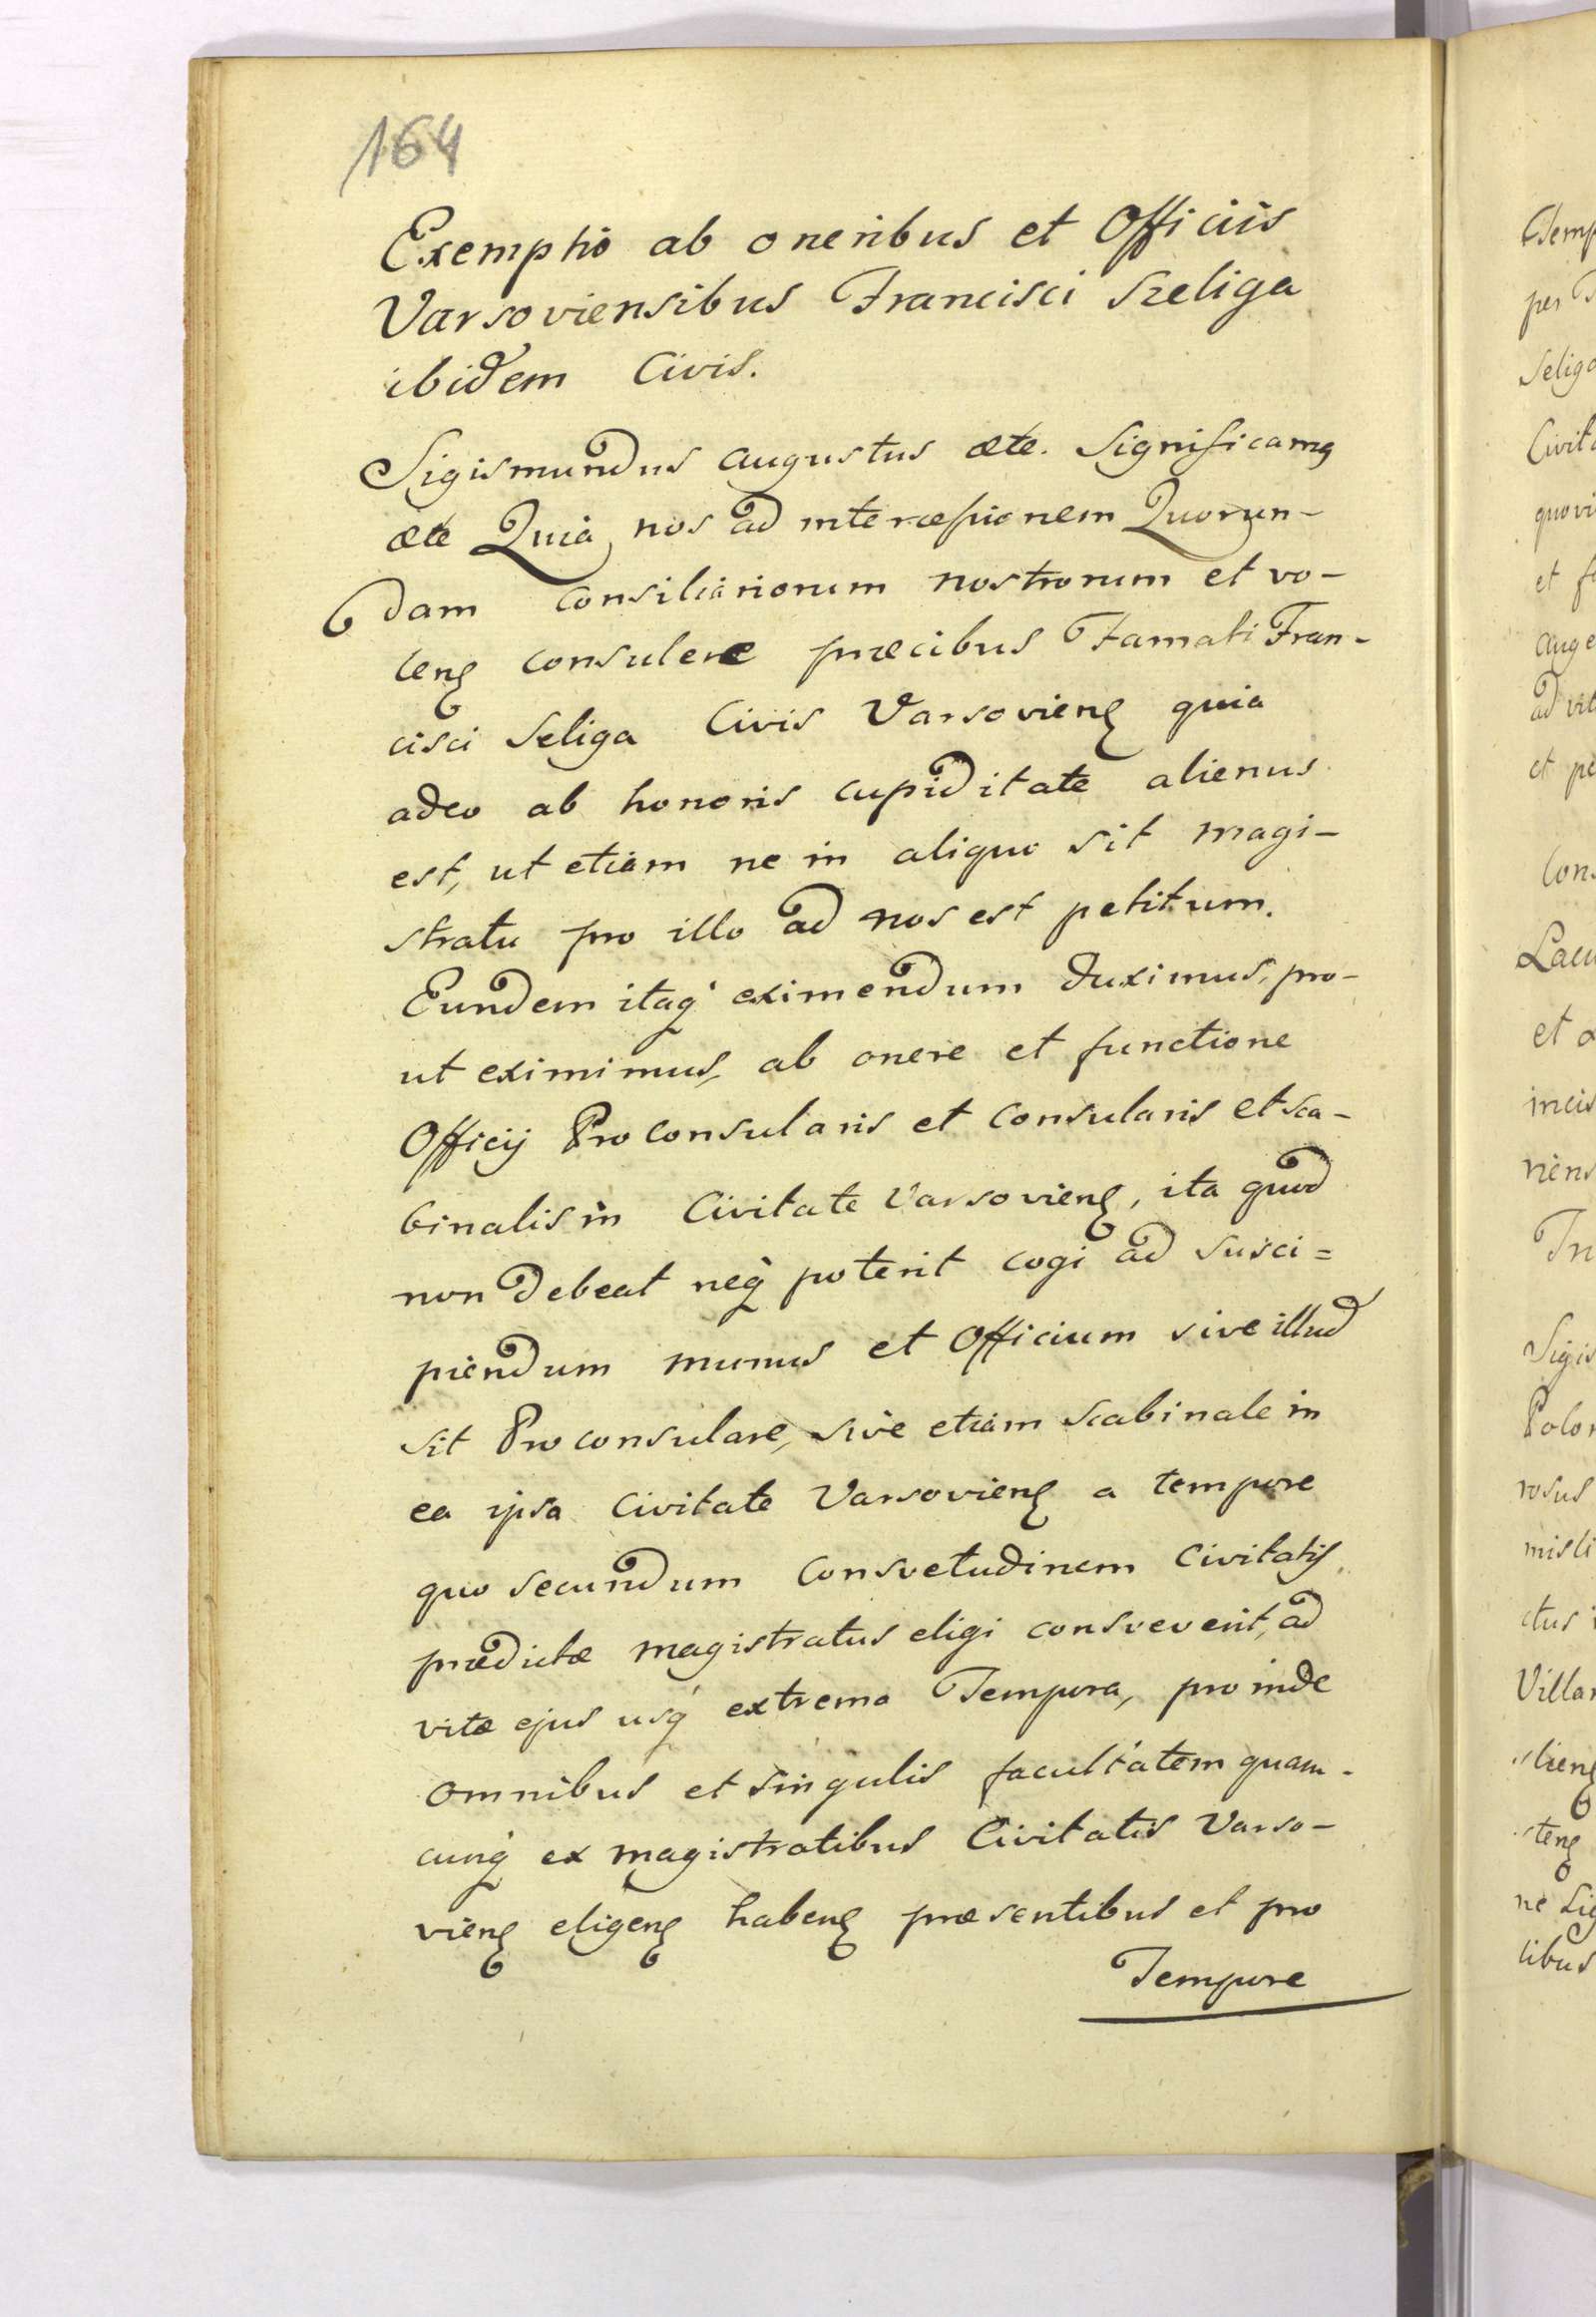 164
Exemptio ab oneribus et Officiis
Varsoviensibus Francisci Szeliga
ibidem Civis.
Sigismundus Augustus ætc. Significamq
ætc Quia nos ad intercessionem Quorun-
dam Consiliariorum nostrorum et vo-
lenq consulere præcibus Famati Fran-
cisci Seliga Civis Varsovienq quia
adeo ab honoris cupiditate alienus
est, ut etiam ne in aliquo sit magi-
stratu pro illo ad nos est petitum.
Eundem itaq' eximendum duximus, pro-
ut eximimus, ab onere et functione
Officij Proconsularis et Consularis et sca-
binalis in Civitate Varsovienq, ita quod
non debeat neq' poterit cogi ad susci=
piendum munus et Officium sive illud
sit Proconsulare, sive etiam Scabinale in
ea ipsa Civitate Varsovienq a tempore
quo secundum Consvetudinem Civitatis
prædictæ magistratus eligi consveverit, ad
vitæ ejus usq' extrema Tempora, proinde
omnibus et singulis facultatem quam-
cunq' ex magistratibus Civitatis Varso-
vienq eligenq habenq præsentibus et pro
Tempore
Temp
per
Selig
Civit
quovi
et f
auge
ad vit
et pe
Con
Lacu
et
incis
riens
In
Sigis
Polon
rosus
misli
ctus
Villa
tenq
libus